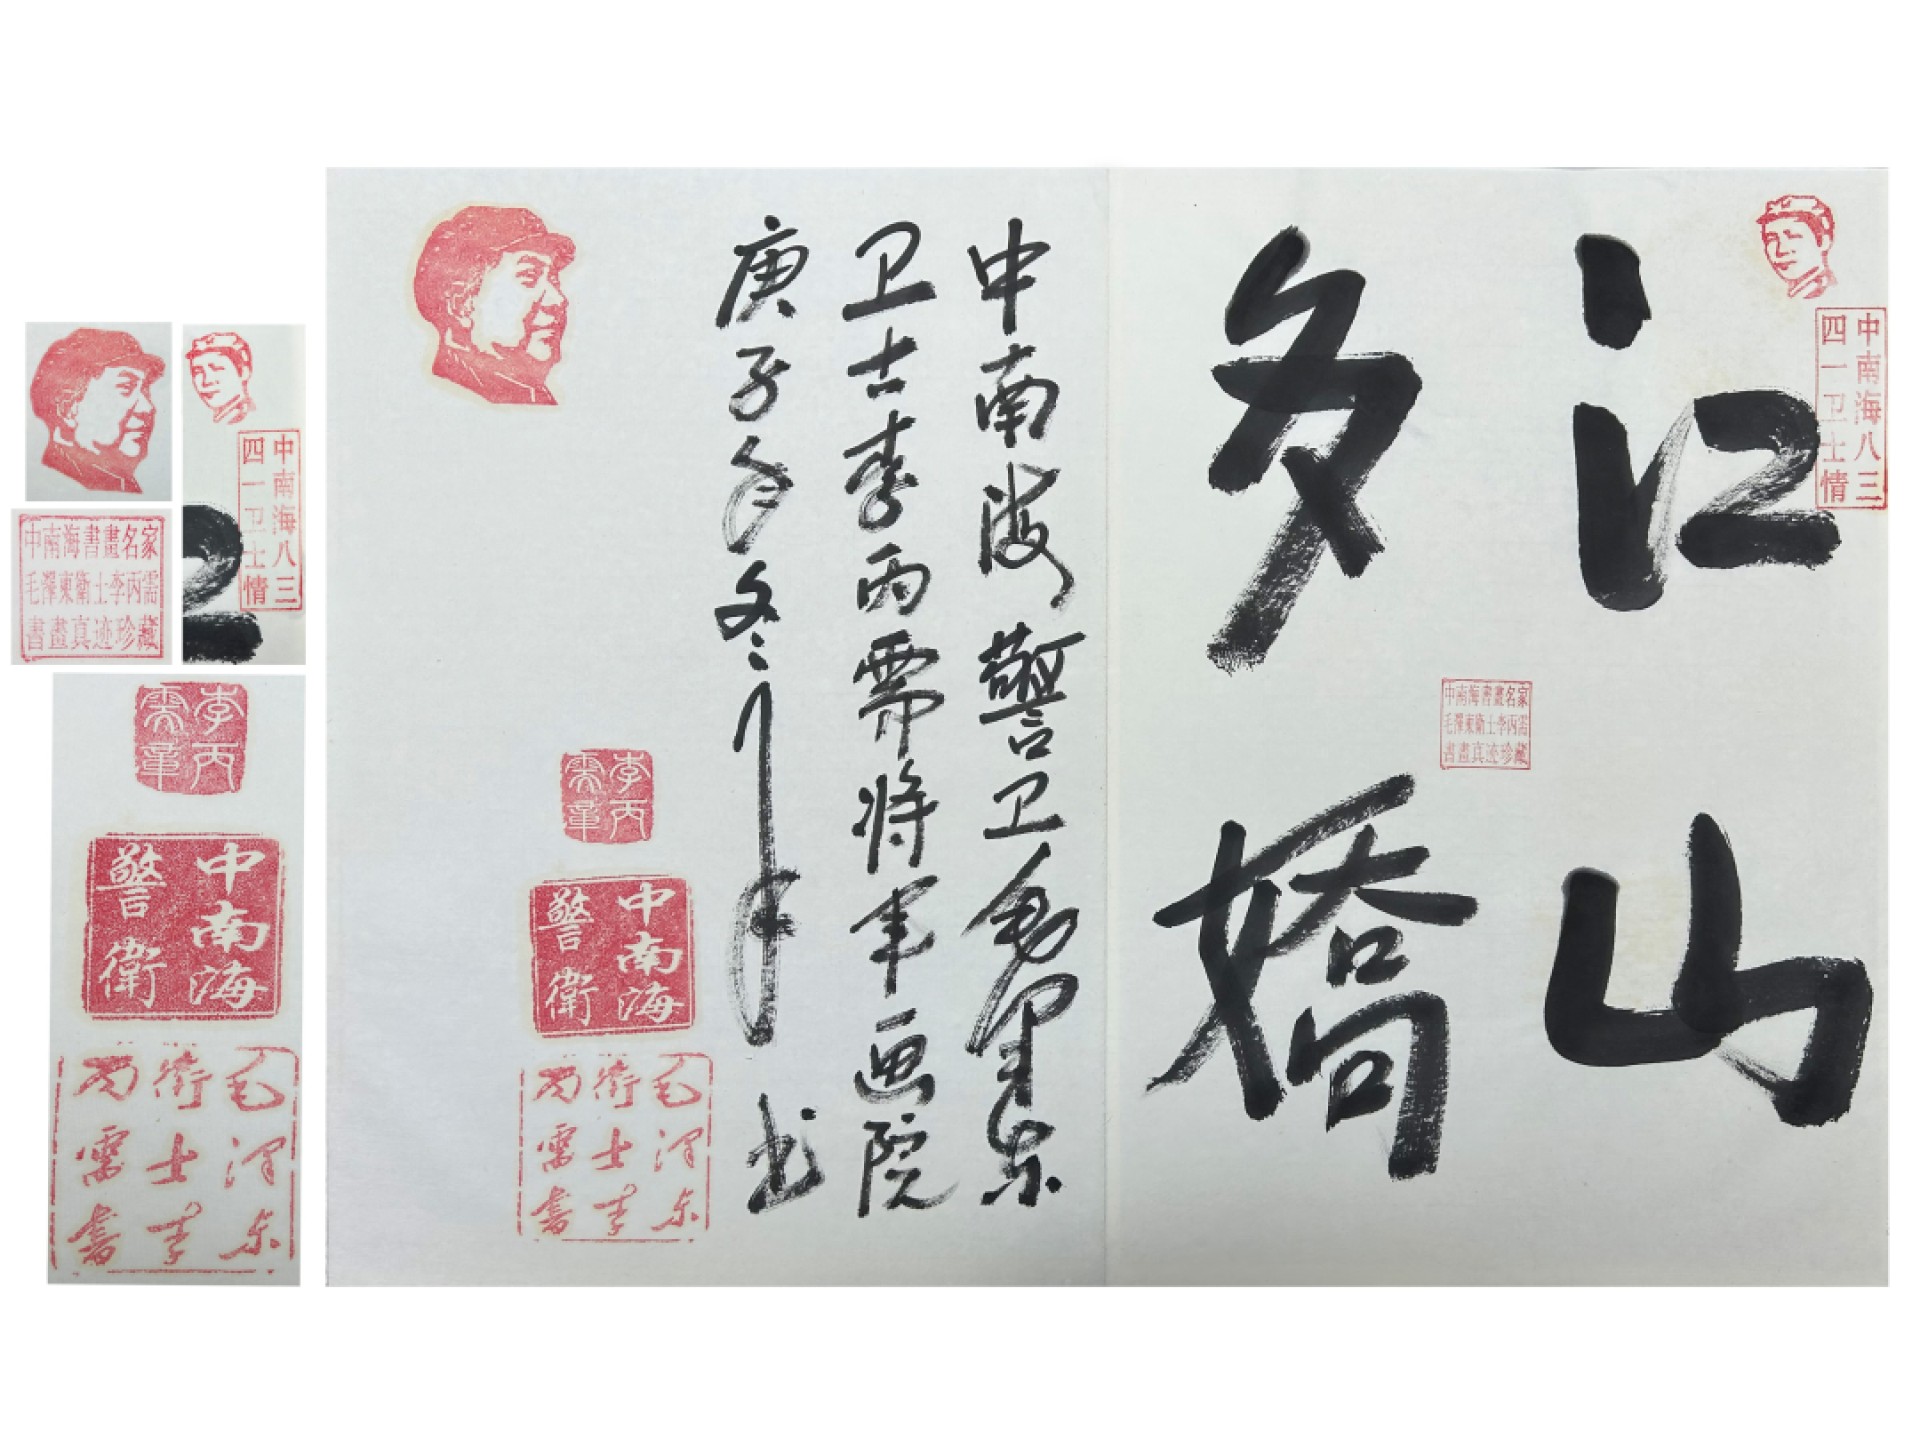 江山
多嬌
中南海八三
四一卫士情
中南海書畫名家
毛澤東衛士李丙需
書畫真迹珍藏
中南海警卫毛泽东
卫士李丙需将军画院
庚子年冬 书
李丙
需章
中南海
警衛
毛泽东
衛士李
丙需書
中南海八三
四一卫士情
中南海書畫名家
毛澤東衛士李丙需
書畫真迹珍藏
李丙
需章
中南海
警衛
毛泽东
衛士李
丙需書